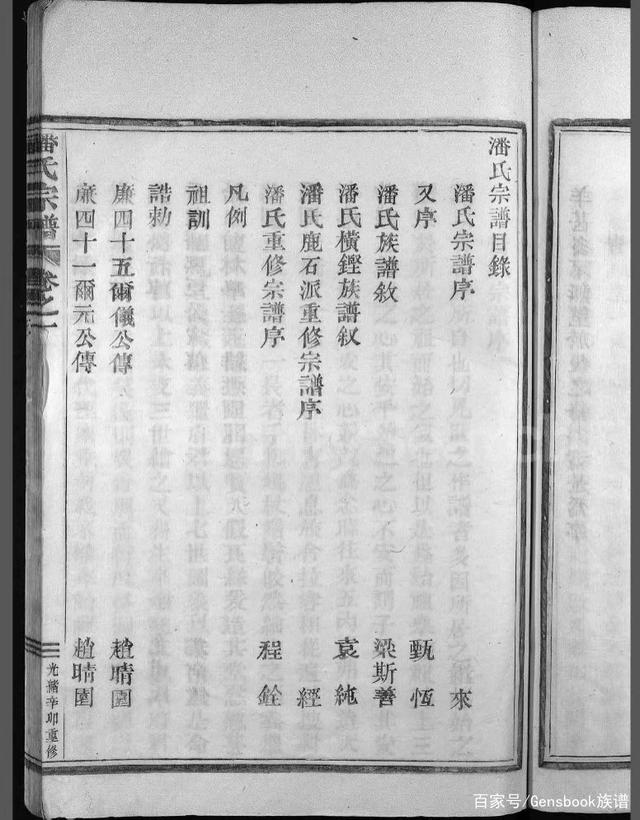 潘氏宗譜目錄
潘氏宗譜序 來
又序 甄恆
潘氏族譜敘 梁斯善
潘氏橫鏗族譜敘 袁純
潘氏鹿石派重修宗譜序 經
潘氏重修宗譜序 程銓
凡例
祖訓
誥勅
廉四十五爾儀公傳 趙晴園
廉四十一爾元公傳 趙晴園
潘氏宗譜 卷之一
光緒辛卯重修
百家号/Gensbook族谱